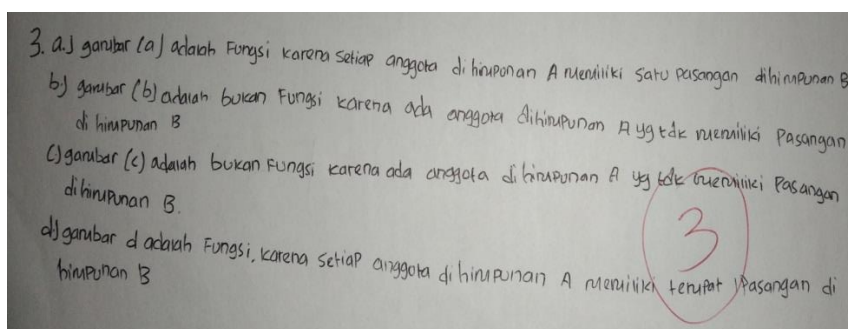 3. a.) gambar (a) adalah Fungsi karena setiap anggota di himpunan A memiliki satu pasangan dihimpunan B
b) gambar (b) adalah bukan Fungsi karena ada anggota dihimpunan A yg tdk memiliki Pasangan
di himpunan B
c) gambar (c) adalah bukan Fungsi karena ada anggota di himpunan A yg tdk memiliki Pasangan
di himpunan B.
d) gambar d adalah Fungsi, karena setiap anggota di himpunan A memiliki tempat Pasangan di
himpunan B
3